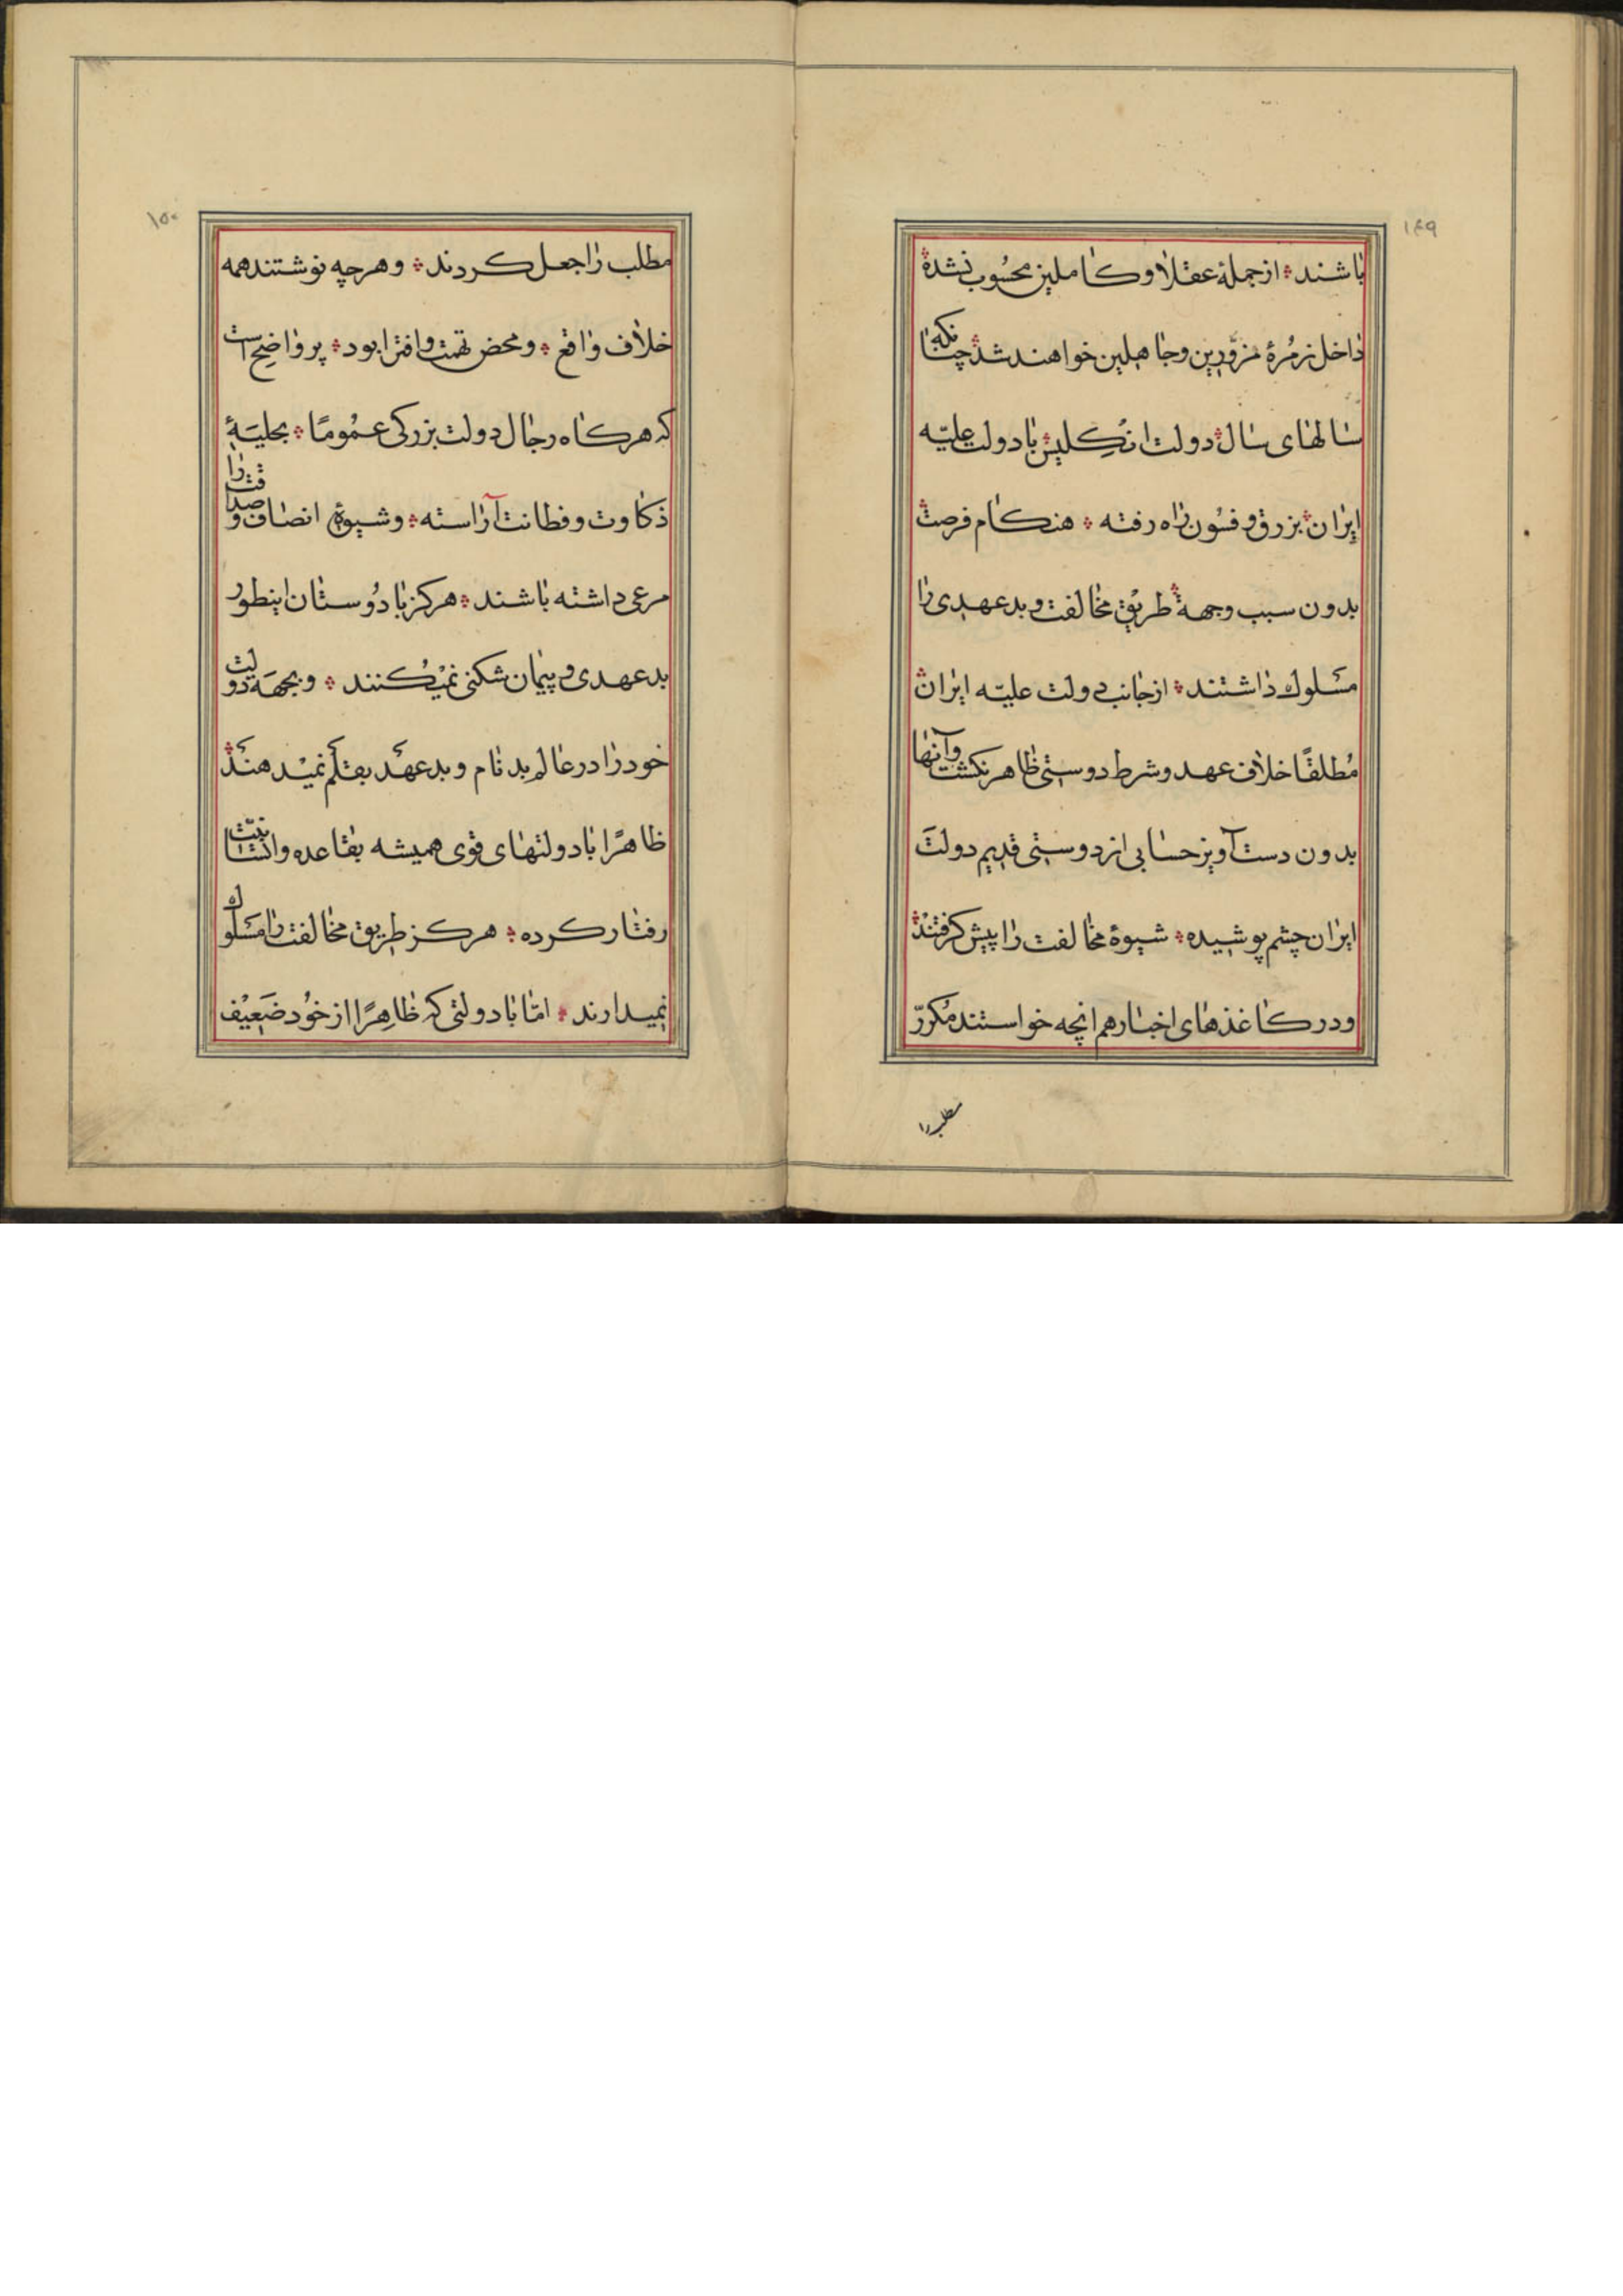 ۱۴۹
باشند ؞ از جملهٔ عقلا و کاملین محسوب نشده ؞
داخل زمرهٔ مزوّرین و جاهلین خواهند شد ؞ چنانکه
سالهای سال ؞ دولت انگلیس ؞ با دولت علیّه
ایران ؞ بزرق و فسون راه رفته ؞ هنکام فرصت
بدون سبب و جهة ؞ طریق مخالفت و بدعهدی را
مسلوک داشتند ؞ از جانب دولت علیّه ایران ؞
مُطلقًا خلاف عهد و شرط دوستی ظاهر نکشت و آنها
بدون دست آویز حسابی از دوستی قدیم دولت
ایران چشم پوشیده ؞ شیوهٔ مخالفت را پیش کرفتند ؞
و در کاغذهای اخبار هم انچه خواستند مُکررّ
مطلب را
۱۵۰
مطلب را جعل کردند ؞ و هرچه نوشتند همه
خلاف واقع ؞ و محض تهمت و افترا بود ؞ پر واضح است
که هرکاه رجال دولت بزرکی عمُومًا ؞ بحلیهٔ
ذکاوت و فطانت آراسته ؞ و شیوهٔ انصاف و صداقت را
مرعی داشته باشند ؞ هرکز با دُوستان اینطور
بدعهدی و پیمان شکنی نمیکنند ؞ و بجهة دولت
خود را در عالم بد نام و بدعهد بقلم نمیدهند ؞
ظاهرًا با دولتهای قوی همیشه بقاعده و انسانیّت
رفتار کرده ؞ هرکز طریق مخالفت را مسلوک
نمیدارند ؞ امّا با دولتی که ظاهِرًا از خُود ضَعیف